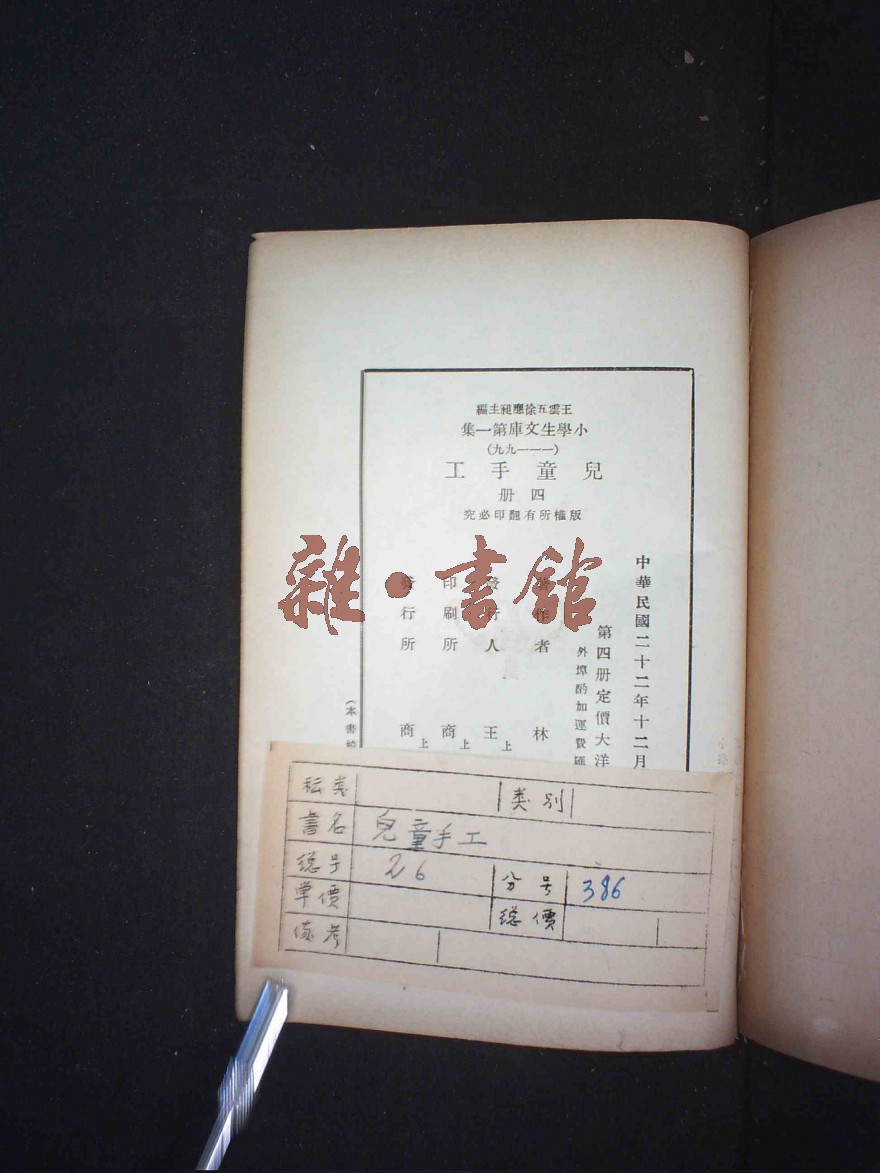 王雲五徐應昶主編
小學生文庫第一集
(一一一九九)
兒童手工
四册
版權所有翻印必究
中華民國二十二年十二月
第四册定價大洋
外埠酌加運費匯
著作者 林
發行人 上 王
印刷所 上 商
發行所 上 商
(本書校
雜·書館
类别
書名 兒童手工
總号 26 分号 386
單價 總價
备考